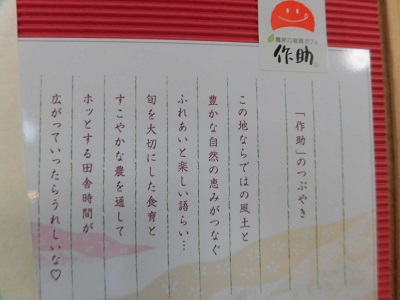 農家の健康カフェ
作助
「作助」のつぶやき
この地ならではの風土と
豊かな自然の恵みがつなぐ
ふれあいと楽しい語らい…
旬を大切にした食育と
すこやかな農を通して
ホッとする田舎時間が
広がっていったらうれしいな♡